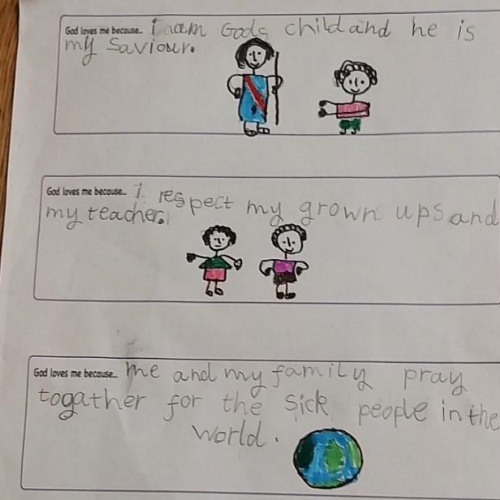 God loves me because... i am Gods child and he is
my Saviour.
God loves me because... i respect my grown ups and
my teacher.
God loves me because... me and my family pray
togather for the sick people in the
world.